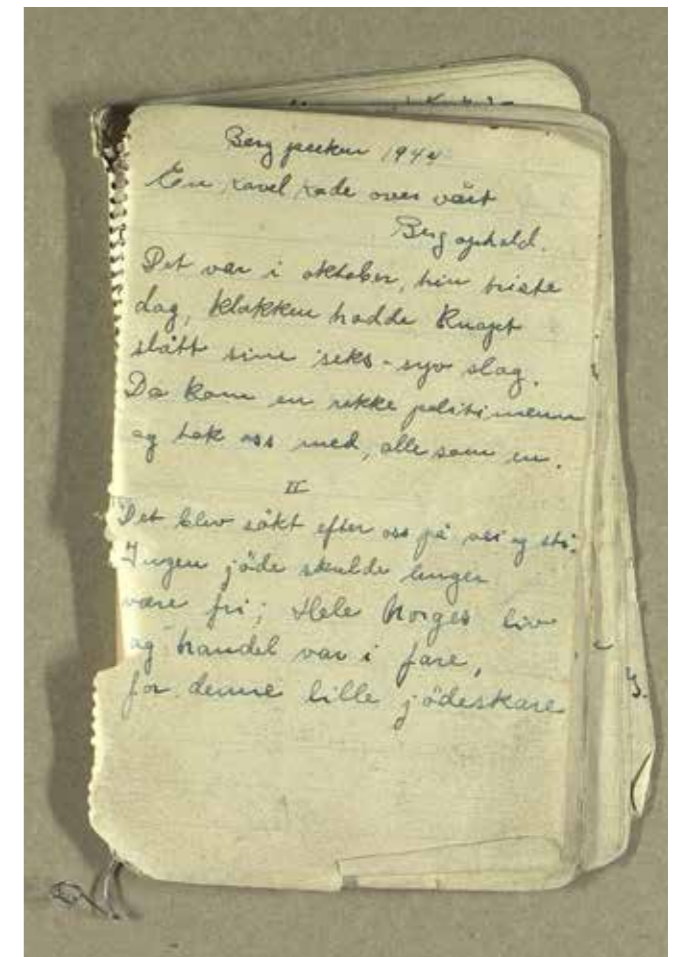 Berg 1944
En over vårt
Berg ophold.
Det var i oktober, hin triste
dag, klokken hadde knapt
slått sine seks-syv slag.
Da kom en rekke politimenn
og tok oss med, alle som en.
II
Det blev søkt efter oss på vei og sti.
Ingen jöde skulde lenger
være fri; Hele Norges liv
og handel var i fare,
for denne lille jödeskare